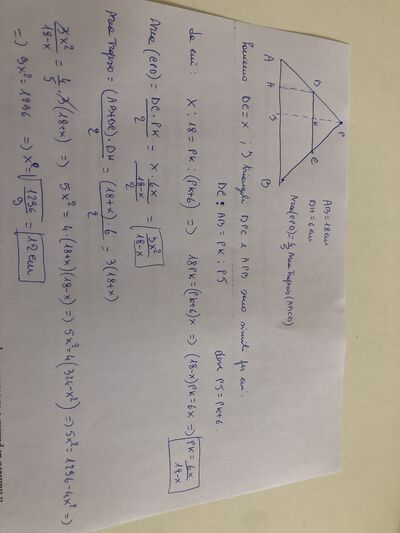 A
H
J
B
D
K
C
P
AB=18cm
DH=6cm
Area(CPD)=4/5 Area Trapezio(ABCD)
DC=X ; I triangoli DPC e APB sono simili per cui:
DC : AB = PK : PJ dove PJ=PK+6.
da cui : X : 18 = PK : (PK+6) => 18PK=(PK+6)X => (18-x)PK=6x => PK=6x/18-x
Area (CPD) = DC·PK/2 = x·6x/18-x/2 = 3x²/18-x
Area Trapezio = (AB+DC)·DH/2 = (18+x)·6/2 = 3(18+x)
3x²/18-x = 4/5·3(18+x) => 5x²=4·(18+x)(18-x) => 5x²=4(324-x²) => 5x²=1296-4x² =>
=> 9x²=1296 => x=√1296/9 = 12cm